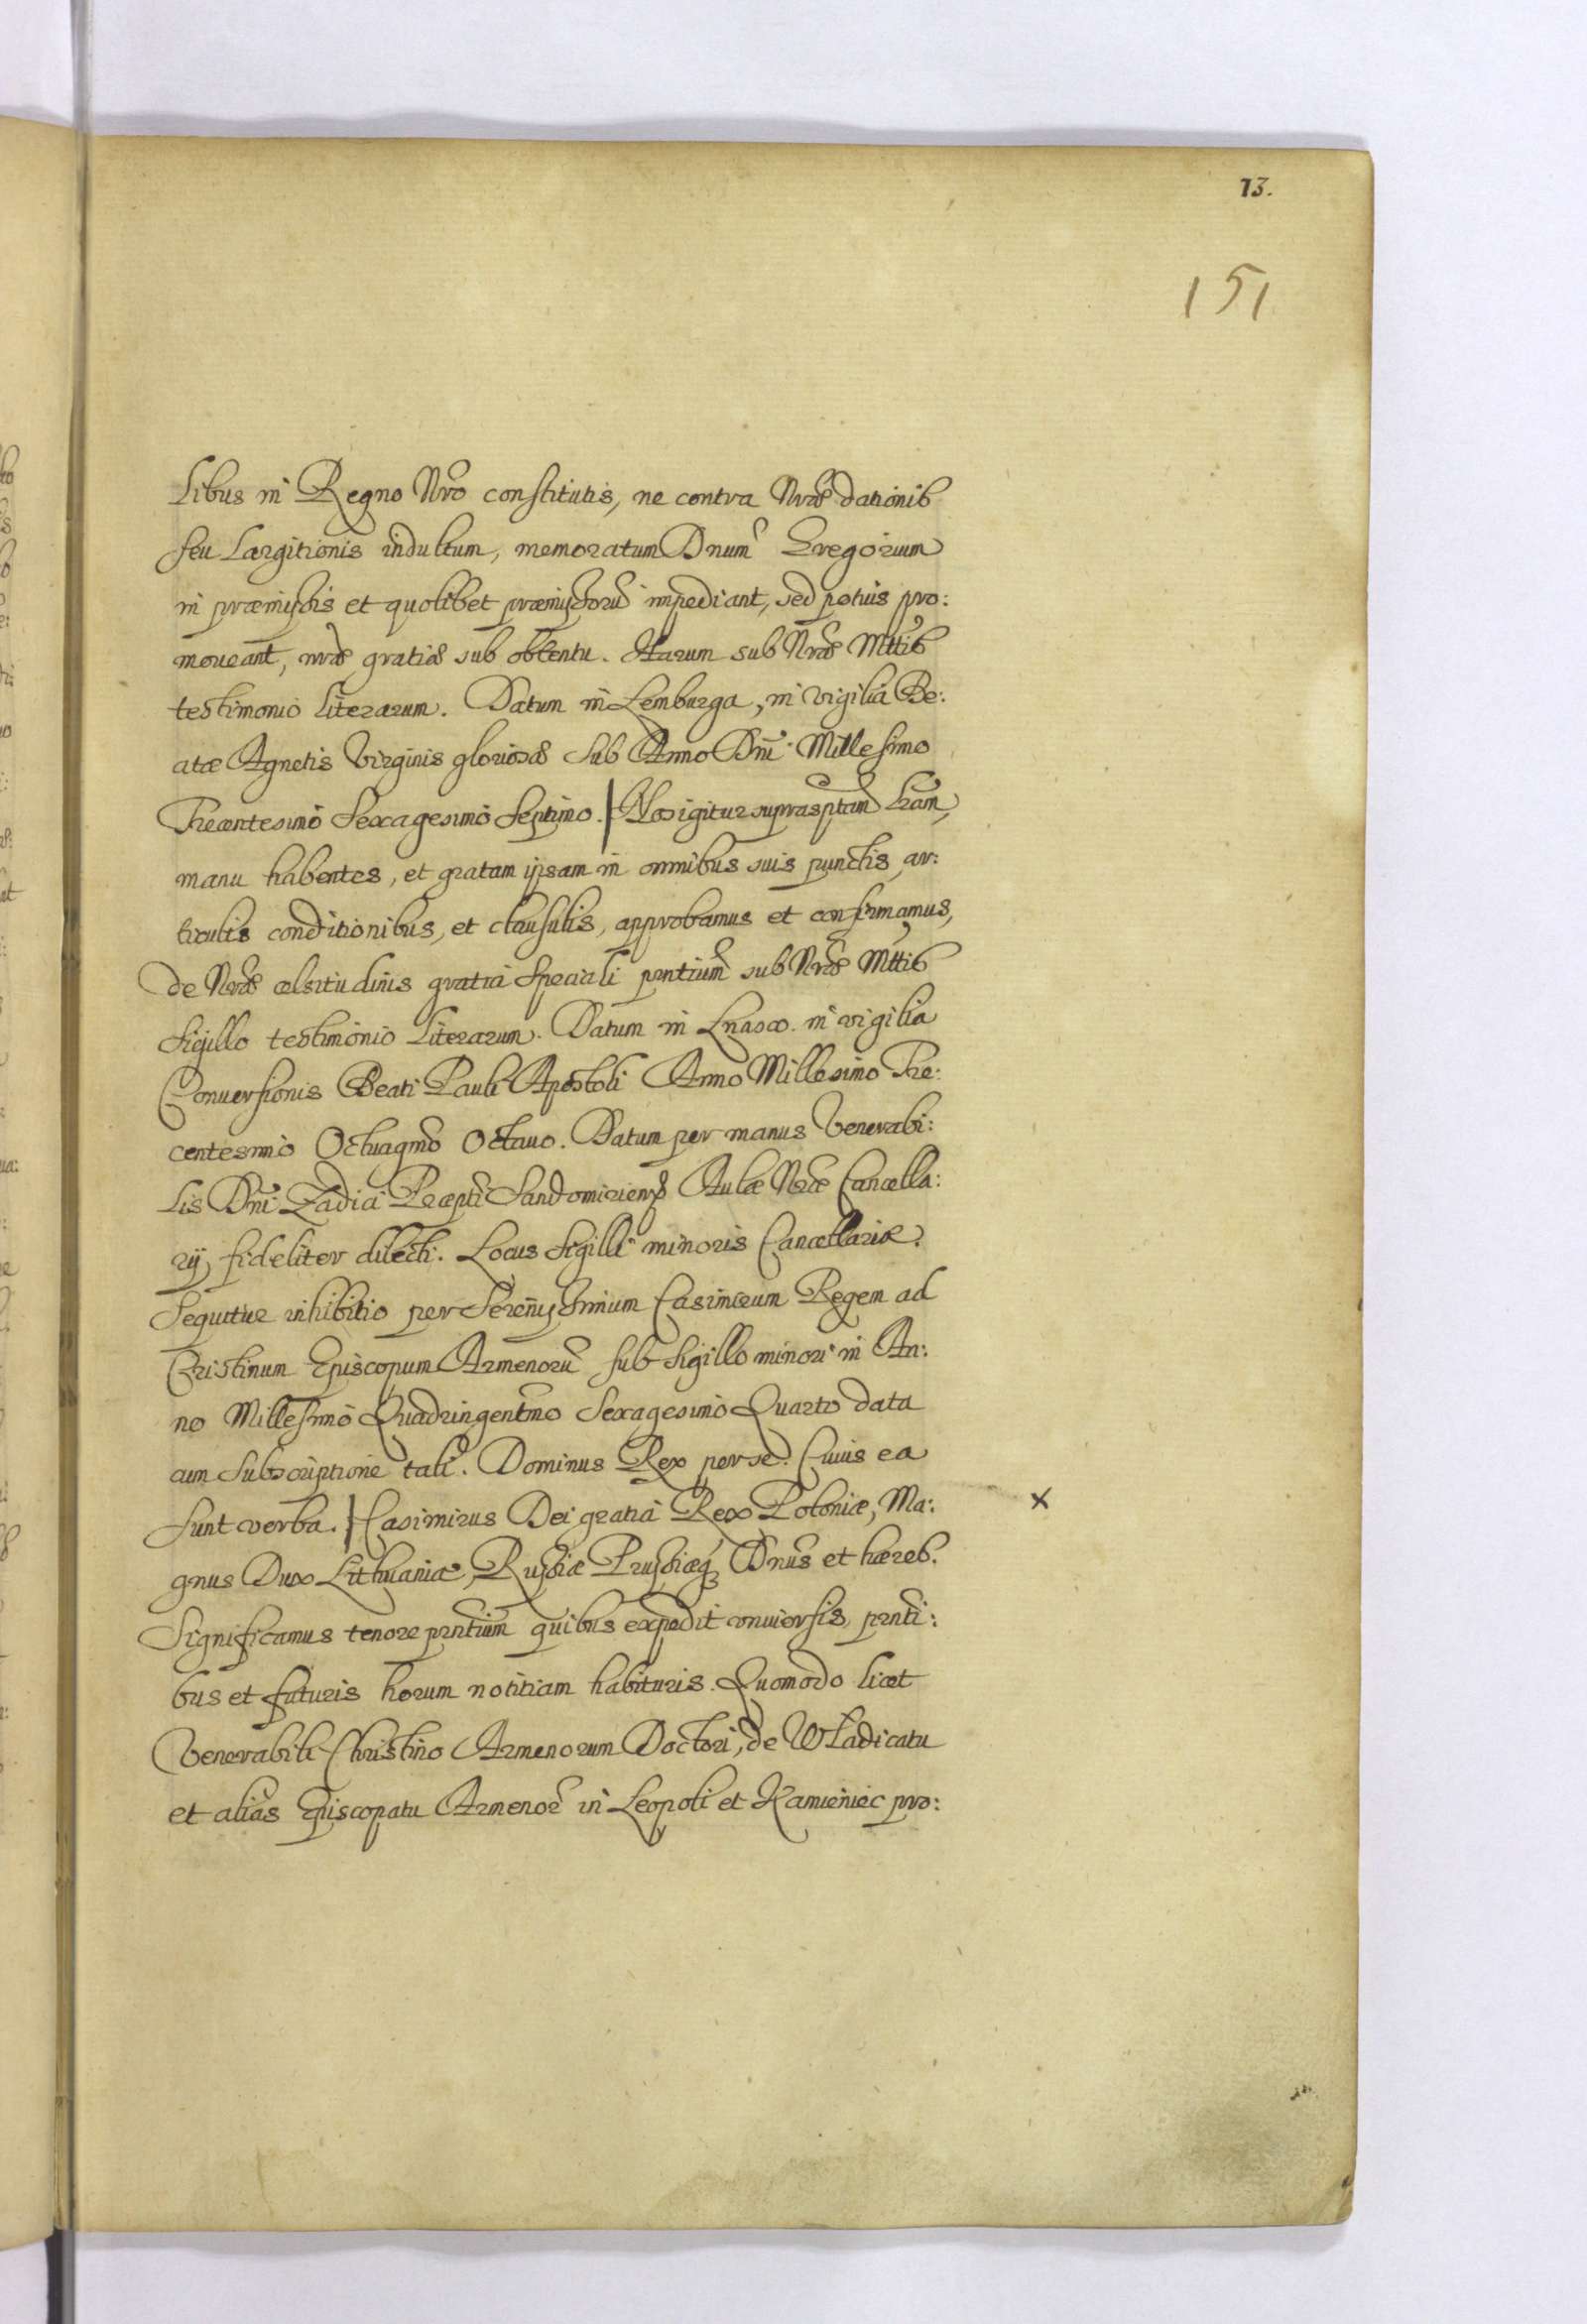 13.
151
libus in Regno Nrõ constitutis, ne contra Nræ dationis
seu Largitionis indultum, memoratum Dnum̃ Gregorium
in præmissis et quolibet præmissorũ impediant, sed potius pro:
moueant, nræ gratiæ sub obtentu. Harum sub Nræ Mttis
testimonio literarum. Datum in Lemburga, in vigilia Be:
atæ Agnetis Virginis gloriosæ Sub Anno Dnĩ Millesimo
Trecentesimo Sexagesimo Septimo. | Nos igitur suprasptam Lram,
manu habentes, et gratam ipsam in omnibus suis punctis, ar:
ticulis conditionibus, et clausulis, approbamus et confirmamus,
de Nræ celsitudinis gratia Speciali pntium̃ sub Nræ Mttis
Sigillo testimonio Literarum. Datum in in vigilia
Conuersionis Beati Pauli Apostoli Anno Millesimo Tre:
centesimo Octuagm̃o Octauo. Datum per manus Venerabi:
lis Dnĩ Zadici Præpti Sandomiriens Aulæ Nræ Cancella:
rij, fideliter dilecti. Locus Sigilli minoris Cancellariæ.
Sequitur inhibitio per Serenissimum Casimirum Regem ad
Cristinum Episcopum Armenorũ sub Sigillo minori in An:
no Millesimo Quadringentm̃o Sexagesimo Quarto data
cum Subscriptione tali. Dominus Rex per se. Cuius ea
Sunt verba. | Casimirus Dei gratia Rex Poloniæ, Ma: x
gnus Dux Lithuaniæ, Russiæ Prussiæq Dnũs et hæres.
Significamus tenore pntium̃ quibus expedit vniuersis, pnti:
bus et futuris horum notitiam habituris. Quomodo licet
Venerabili Christino Armenorum Doctori, de Wladicatu
et alias Episcopatu Armenor̃ in Leopoli et Kamieniec pro: